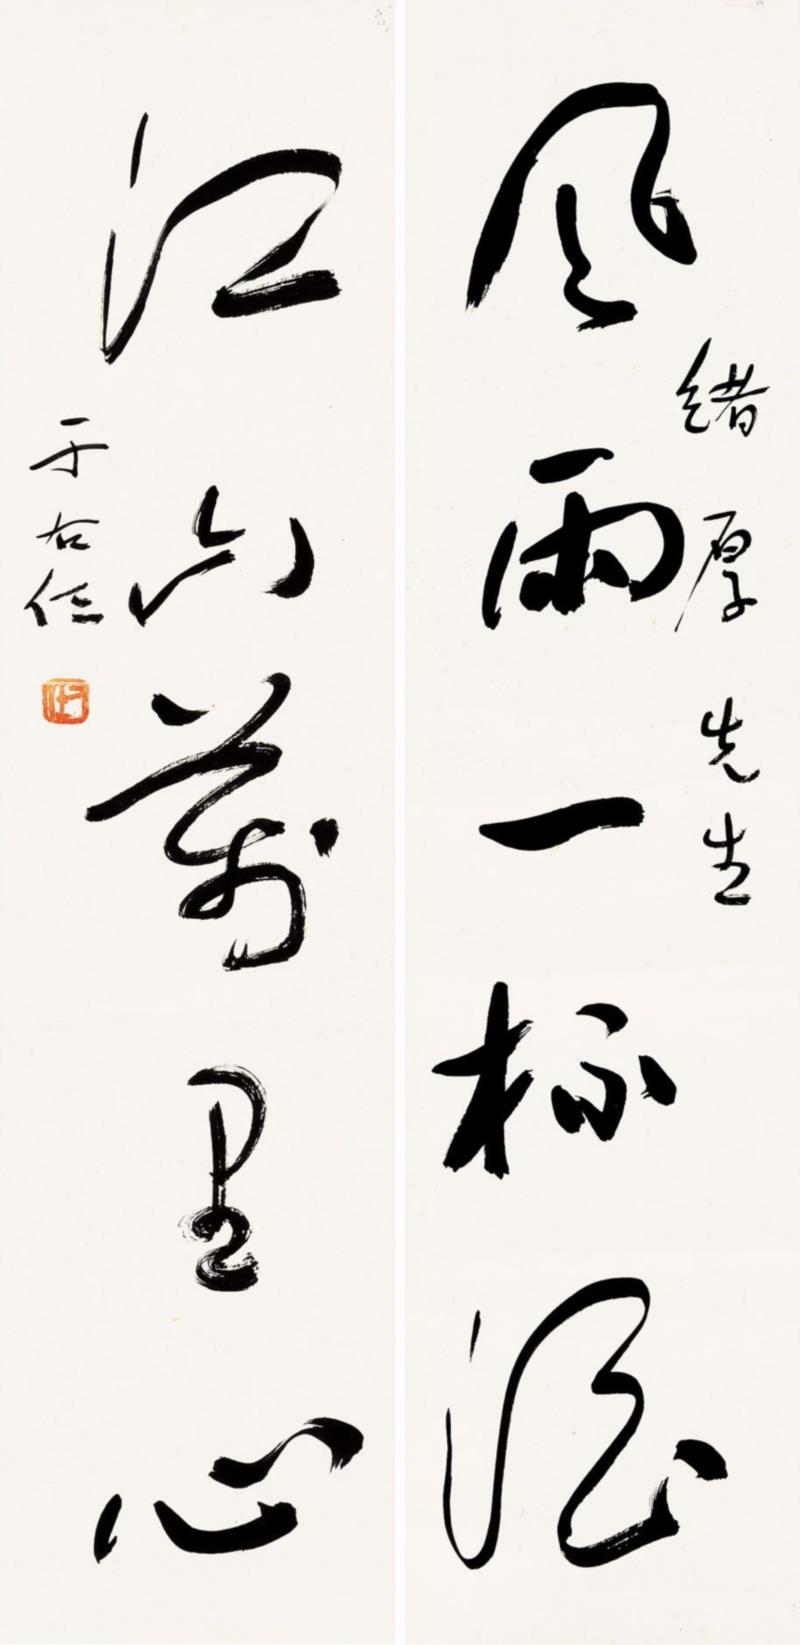 緒厚先生
風雨一杯酒
江山萬里心
于右任